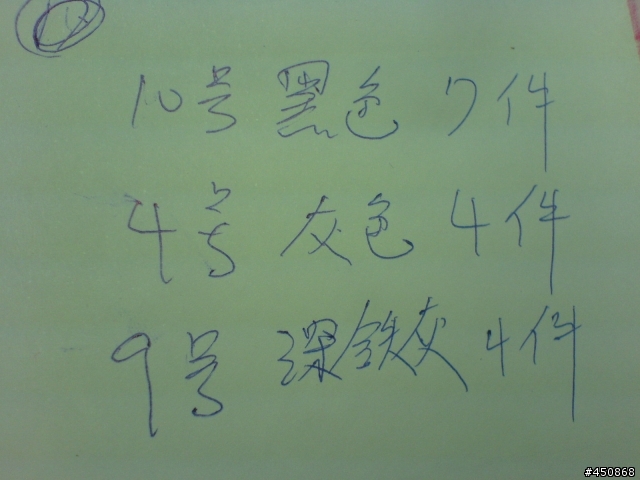 10号 黑色 7件
4号 灰色 4件
9号 深铁灰 4件
#450868